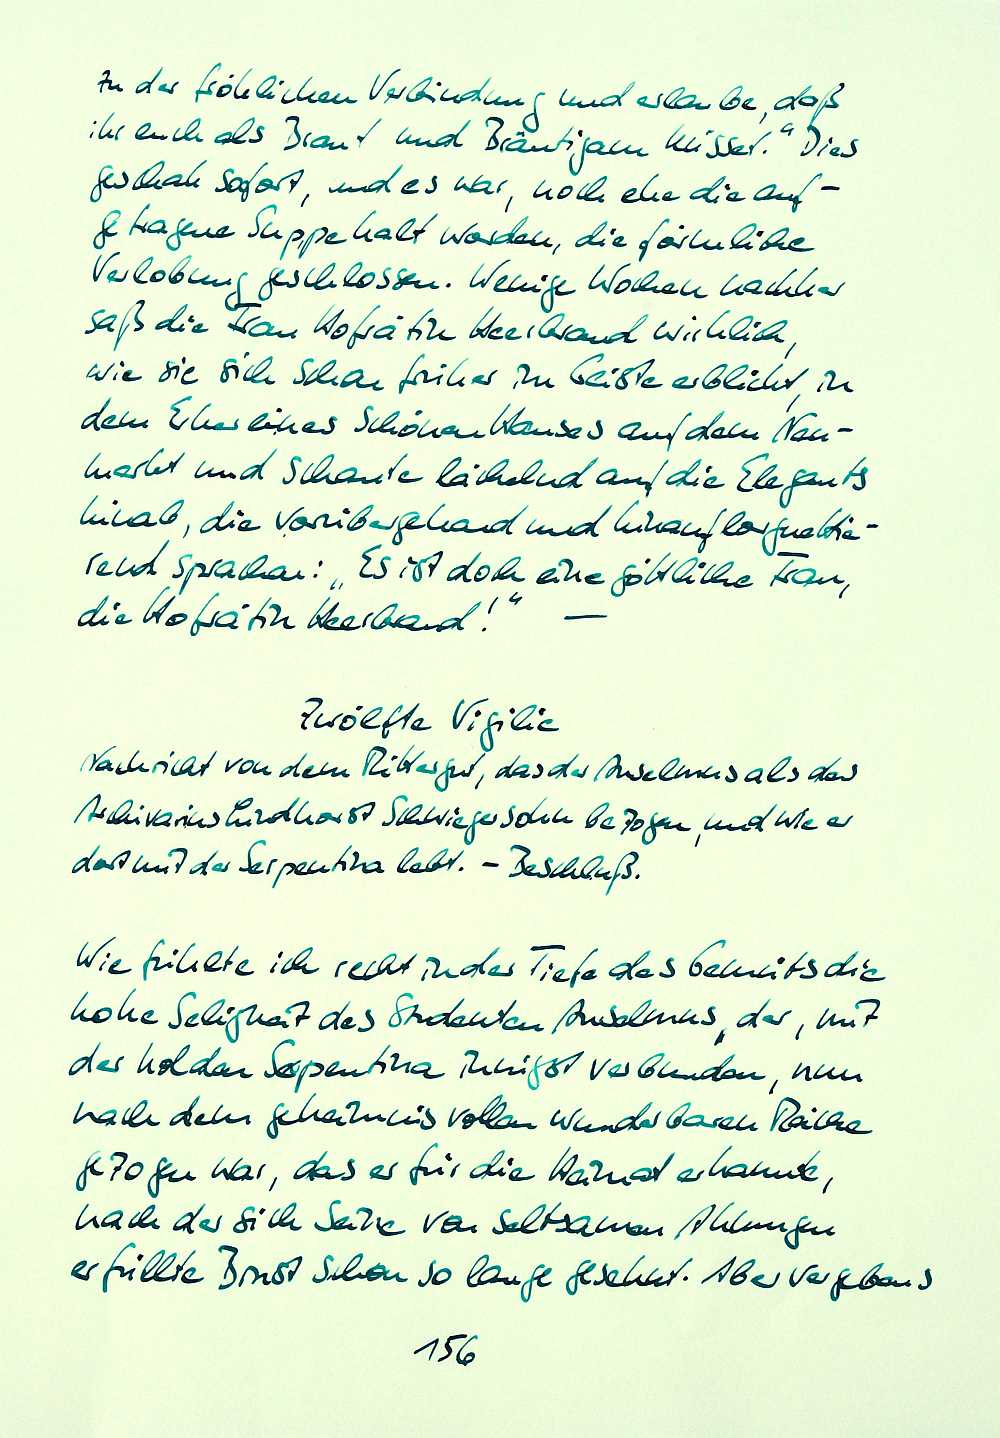 zu der fröhlichen Verbindung und erlaube, daß
ihr euch als Braut und Bräutigam küsset." Dies
geschah sofort, und es war, noch ehe die auf-
getragene Suppe kalt worden, die förmliche
Verlobung geschlossen. Wenige Wochen nachher
saß die Frau Hofrätin Heerbrand wirklich,
wie sie sich schon früher im Geiste erblickt, in
dem Erker eines schönen Hauses auf dem Neu-
markt und schaute lächelnd auf die Elegants
hinab, die vorübergehend und hinauflorgnettie-
rend sprachen: „Es ist doch eine göttliche Frau,
die Hofrätin Heerbrand!" —
Zwölfte Vigilie
Nachricht von dem Rittergut, das der Anselmus als des
Archivarius Lindhorst Schwiegersohn bezogen, und wie er
dort mit der Serpentina lebt. – Beschluß.
Wie fühlte ich recht in der Tiefe des Gemüts die
hohe Seligkeit des Studenten Anselmus, der, mit
der holden Serpentina innigst verbunden, nun
nach dem geheimnisvollen wunderbaren Reiche
gezogen war, das er für die Heimat erkannte,
nach der sich seine von seltsamen Ahnungen
erfüllte Brust schon so lange gesehnt. Aber vergebens
156